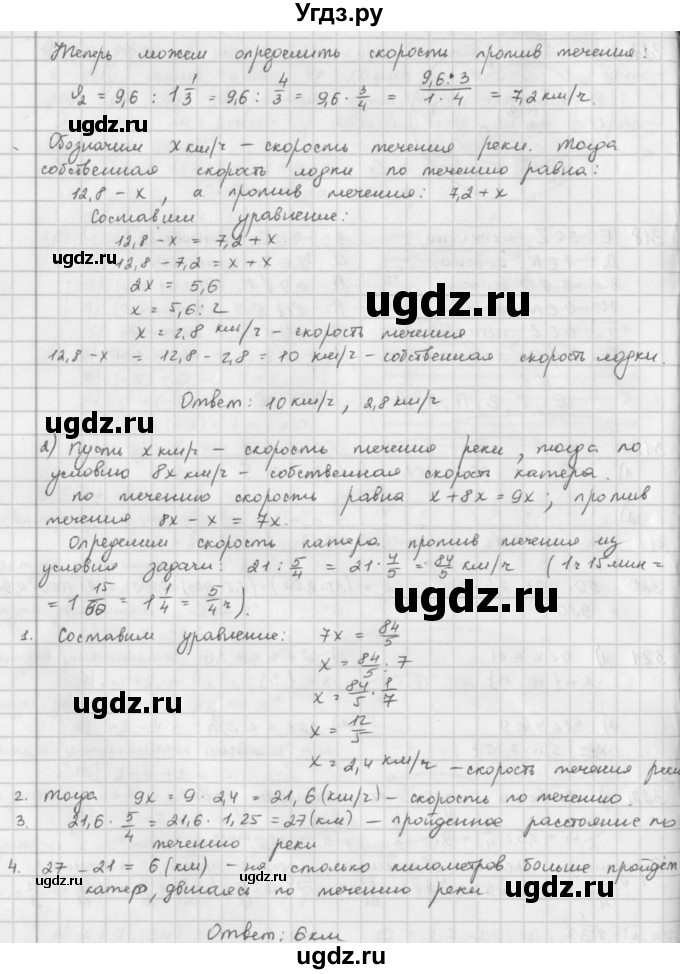 Угдз.ру
Теперь можем определить скорость против течения:
v₂ = 9,6 : 1 1/3 = 9,6 : 4/3 = 9,6 · 3/4 = (9,6 · 3)/(1 · 4) = 7,2 км/ч.
ugdz.ru
Обозначим x км/ч – скорость течения реки. Тогда
собственная скорость лодки по течению равна:
12,8 – x, а против течения: 7,2 + x
Составим уравнение:
12,8 – x = 7,2 + x
12,8 – 7,2 = x + x
ugdz.ru
2x = 5,6
x = 5,6 : 2
ugdz.ru
x = 2,8 км/ч – скорость течения
12,8 – x = 12,8 – 2,8 = 10 км/ч – собственная скорость лодки.
Ответ: 10 км/ч, 2,8 км/ч
ugdz.ru
2) Пусть x км/ч – скорость течения реки, тогда по
условию 8x км/ч – собственная скорость катера.
по течению скорость равна x + 8x = 9x; против
течения 8x – x = 7x.
ugdz.ru
Определим скорость катера против течения из
условия задачи: 21 : 5/4 = 21 · 4/5 = 84/5 км/ч (1ч 15мин =
= 1 15/60 = 1 1/4 = 5/4 ч).
ugdz.ru
1. Составим уравнение: 7x = 84/5
x = 84/5 : 7
x = 84/5 · 1/7
ugdz.ru
x = 12/5
x = 2,4 км/ч – скорость течения реки
ugdz.ru
2. Тогда 9x = 9 · 2,4 = 21,6 (км/ч) – скорость по течению.
3. 21,6 · 5/4 = 21,6 · 1,25 = 27 (км) – пройденное расстояние по
течению реки
4. 27 – 21 = 6 (км) – на столько километров больше пройдет
ugdz.ru
катер, двигаясь по течению реки
ugdz.ru
Ответ: 6 км
ugdz.ru